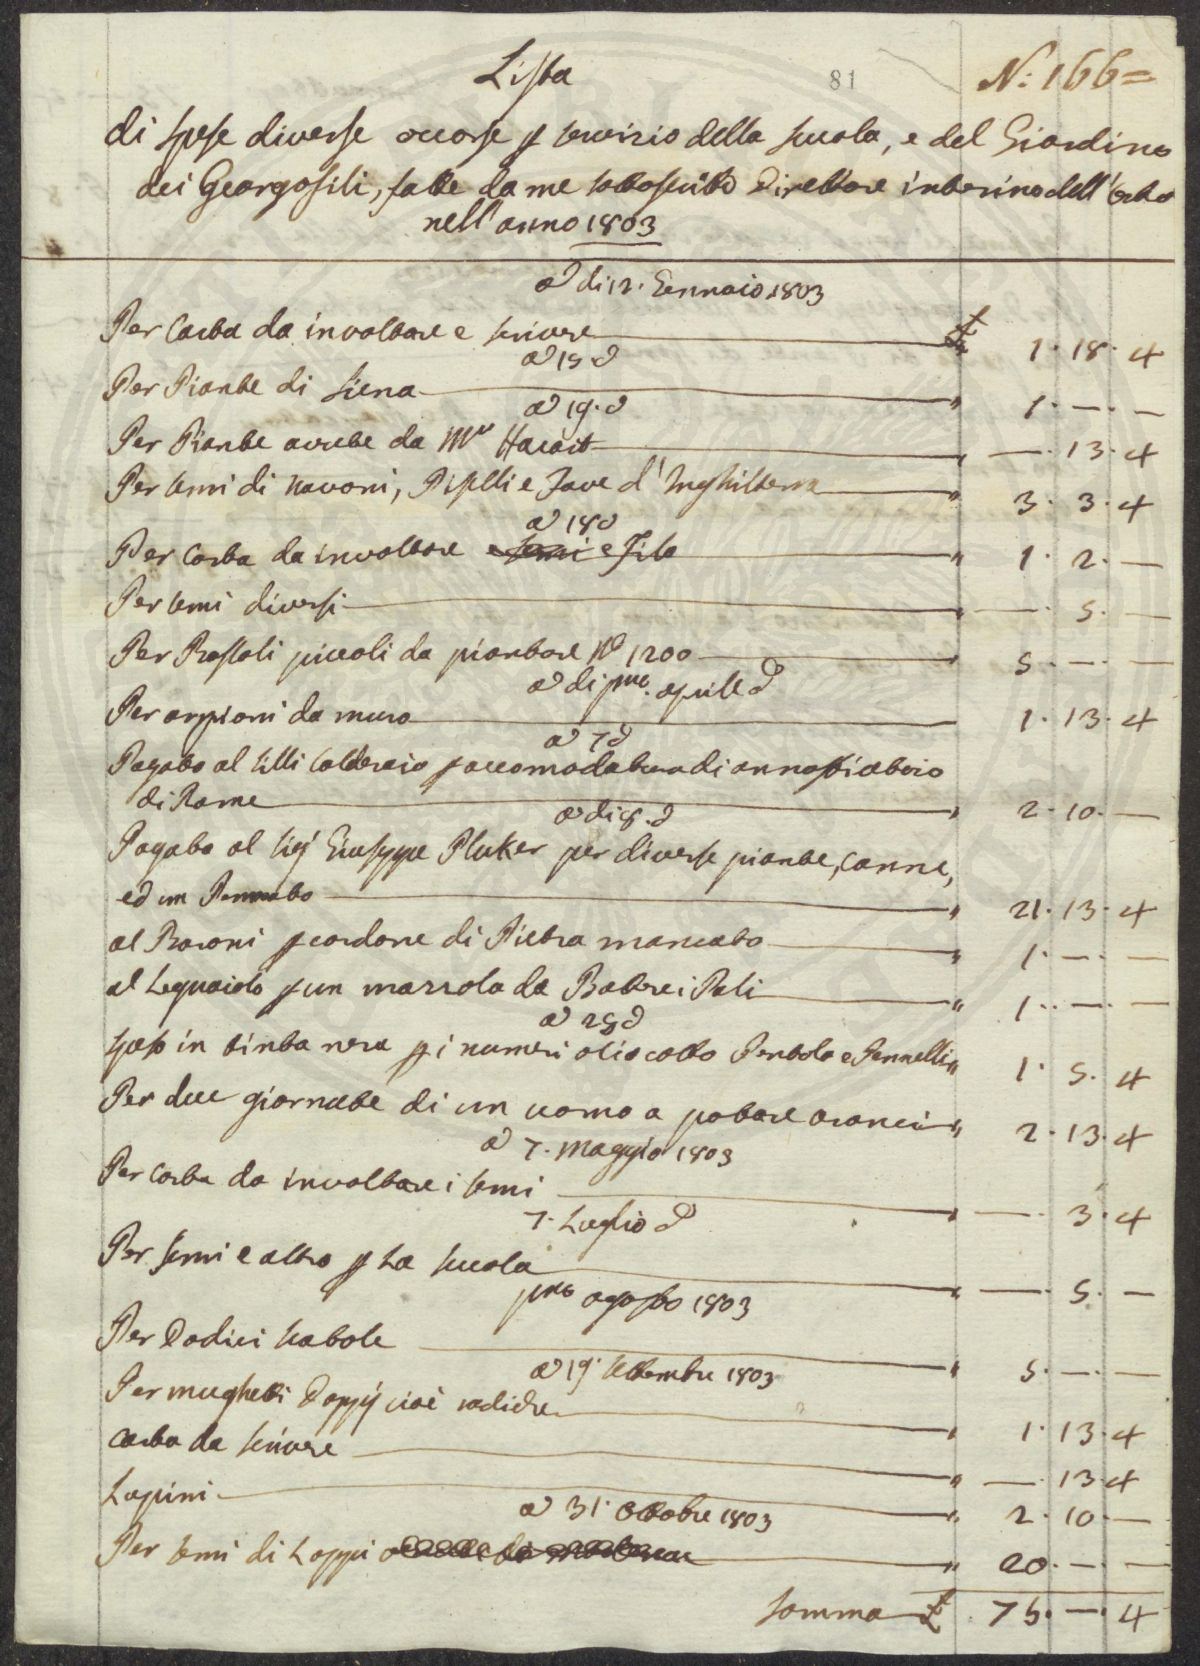 Lista
81
N: 166=
di spese diverse occorse p servizio della scuola, e del Giardino
dei Georgofili, fatte da me sottoscritto Direttore interino dell'orto
nell'anno 1803
a di 12. Gennaio 1803
Per Carta da involtare e scrivere £ 1. 18. 4
a 15 d
Per Piante di Siena " 1. — . —
a 19. d
Per Piante avute da Mr " — . 13. 4
Per semi di Navoni, Piselli e Fave d'Inghilterra " 3. 3. 4
a 18 d
Per Carta da involtare e Filo " 1. 2. —
Per semi diversi " — . 5. —
Per Rastoli piccoli da piantare No 1200 " 5. — . —
a di pmo. aprile d
Per arpioni da muro 1. 13. 4
a 7 d
Pagato al Calderaio p accomodatura di annaffiatoio
di Rame " 2. 10. —
a di 8. d
Pagato al Sigr Giuseppe Pluker per diverse piante, canne,
ed un Pennato " 21. 13. 4
al Baroni p cordone di Pietra mancato " 1. — . —
al Legnaiolo p un mazzolo da Batter i Pali " 1. — . —
a 28 d
Speso in tinta nera p i numeri olio cotto Pentola e Pennelli " 1. 5. 4
Per due giornate di un uomo a potare aranci " 2. 13. 4
a 7. Maggio 1803
Per Carta da involtare i semi " — . 3. 4
7. Luglio d
Per semi e altro p La scuola " — . 5. —
pmo agosto 1803
Per Dodici scatole " 5. — . —
a 19. Settembre 1803
Per mughetti Doppij cioè radiche " 1. 13. 4
Carta da scrivere " — . 13. 4
Lupini " 2. 10. —
a 31. Ottobre 1803
Per semi di Loppi " 20. — . —
Somma £ 75. — . 4